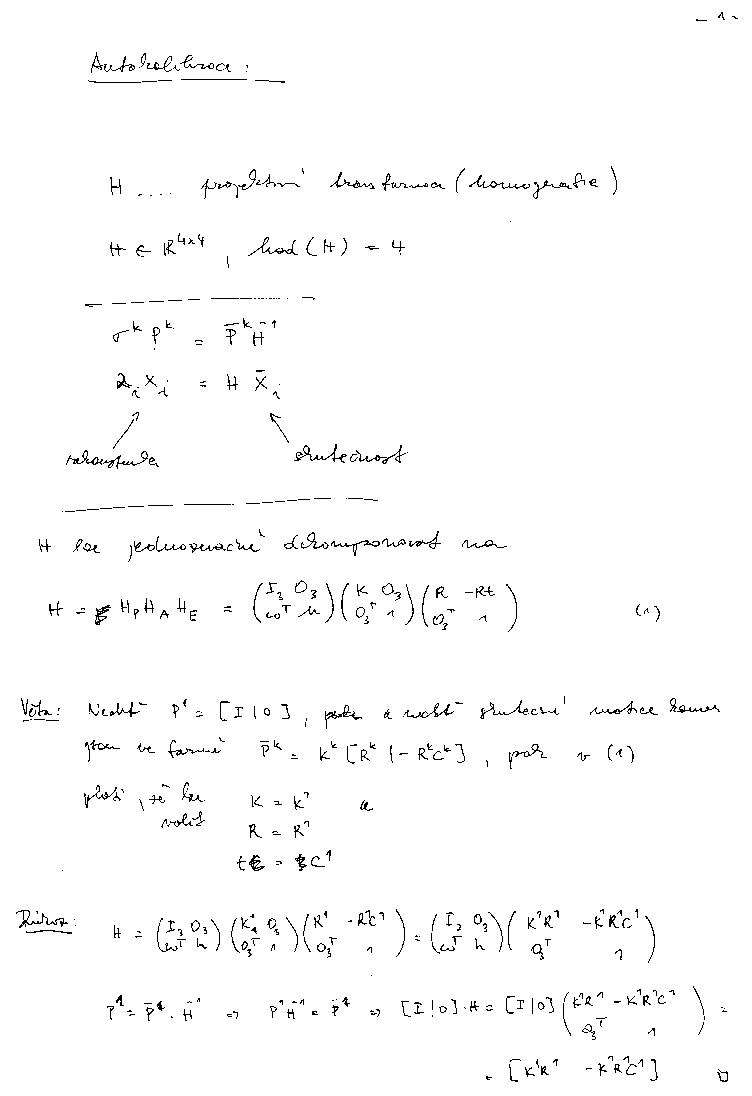 - 1 -
Autokalibrace :
H .... projektivní transformace (homografie)
H ∈ R^{4×4} , hod (H) = 4
σ^k P^k = P̄^k H^{-1}
λ_i X_i = H X̄_i
rekonstrukce skutečnost
H lze jednoznačně dekomponovat na
H = H_P H_A H_E = ( I_3 O_3 ; ω^T h ) ( K O_3 ; O_3^T 1 ) ( R -Rt ; O_3^T 1 ) (1)
Věta: Nechť P^1 = [I | 0] , a nechť skutečné matice kamer
jsou ve formě P̄^k = K^k [R^k | -R^k C^k] , pak v (1)
platí , že lze volit K = K^1 a
R = R^1
t = C^1
Důkaz: H = ( I_3 O_3 ; ω^T h ) ( K^1 O_3 ; O_3^T 1 ) ( R^1 -R^1C^1 ; O_3^T 1 ) = ( I_3 O_3 ; ω^T h ) ( K^1R^1 -K^1R^1C^1 ; O_3^T 1 )
P^1 = P̄^1 . H^{-1} ⇒ P^1 H = P̄^1 ⇒ [I | 0] . H = [I | 0] ( K^1R^1 -K^1R^1C^1 ; O_3^T 1 ) =
= [K^1R^1 -K^1R^1C^1] □